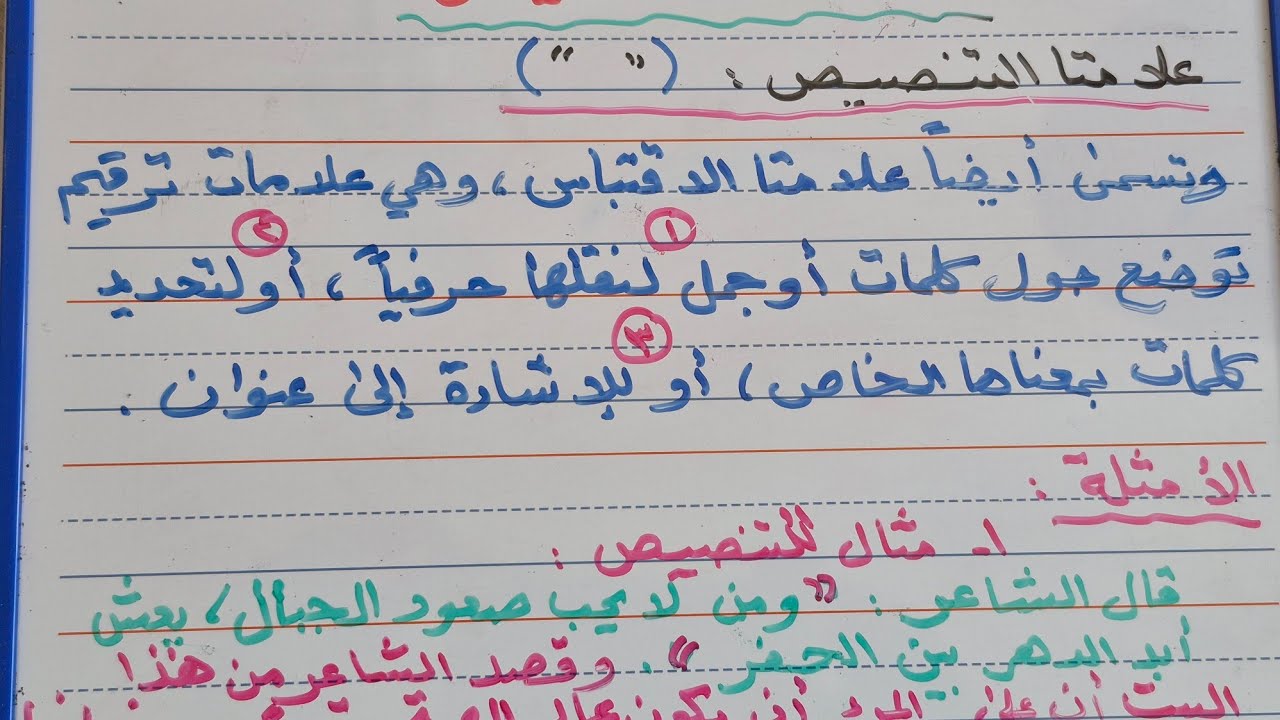 علامتا التنصيص : ( " " )
وتسمى أيضاً علامتا الاقتباس ، وهي علامات ترقيم
١ ٢
توضع حول كلمات أو جمل لنقلها حرفياً ، أو لتحديد
٣
كلمات بمعناها الخاص ، أو للإشارة إلى عنوان .
الأمثلة :
١- مثال للتنصيص :
قال الشاعر : " ومن لا يحب صعود الجبال ، يعش
أبد الدهر بين الحفر " . وقصد الشاعر من هذا
البيت أن على المرء أن يكون